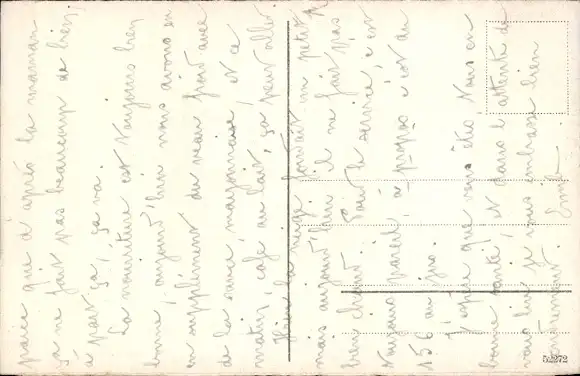 parce que d'après la maman
ça ne fait pas beaucoup de bien,
à part ça, ça va.
La nourriture est toujours bien
bonne, aujourd'hui nous avons en
en supplément du veau froid avec
de la sauce mayonnaise, et ce
matin, café au lait, ça peut aller.
Hier la neige tombait un petit p
mais aujourd'hui il ne fait pas
bien chaud. Pour le service c'est
toujours pareil, à propos c'est du
156 au jus.
J'espère que vous êtes tous en
bonne santé et dans l'attente de
vous lire je vous embrasse bien
Emile
52272